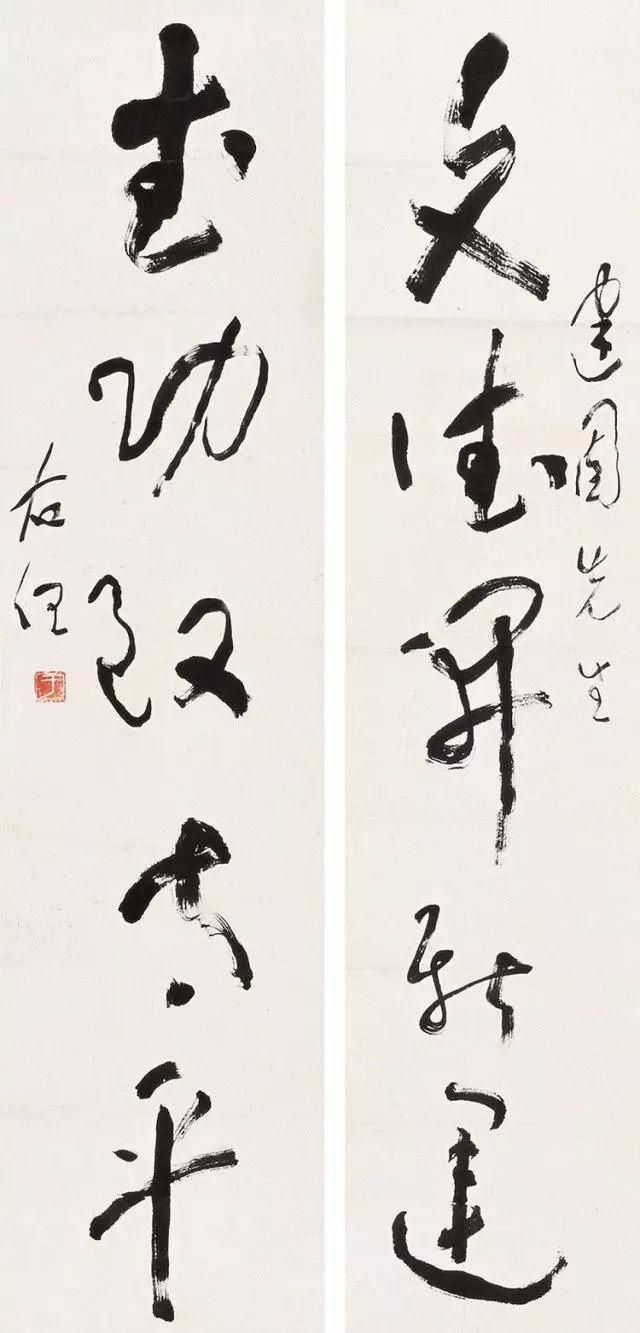 先生
文德開新運
武功致太平
右任